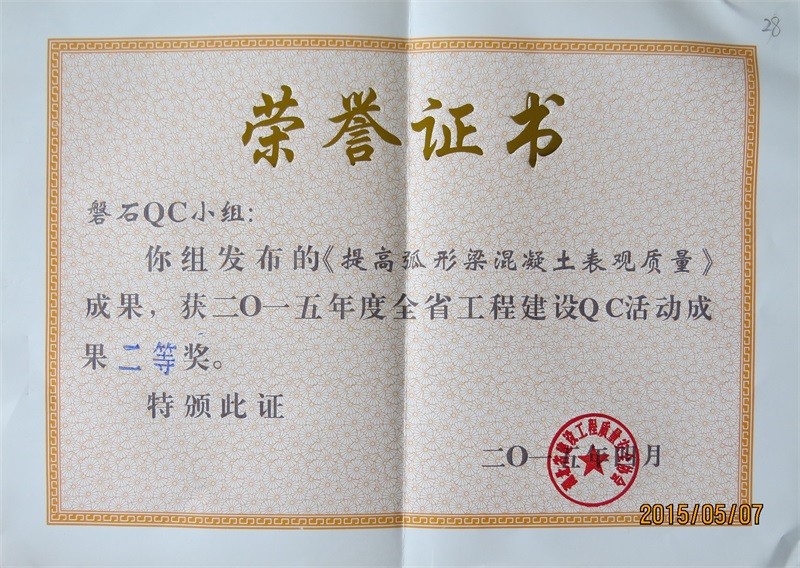 28
荣誉证书
磐石QC小组：
你组发布的《提高弧形梁混凝土表观质量》
成果，获二〇一五年度全省工程建设QC活动成
果二等奖。
特颁此证
二〇一五年四月
2015/05/07